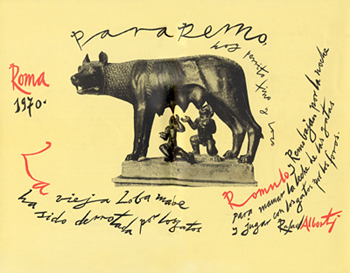 para remo,
Roma
1970.
La
vieja Loba mave
ha sido derrotada por los gatos
Romulo y Remo bajan por la noche
para mamar la leche de las gatas
y jugar con los gatos por los foros.
Rafael Alberti